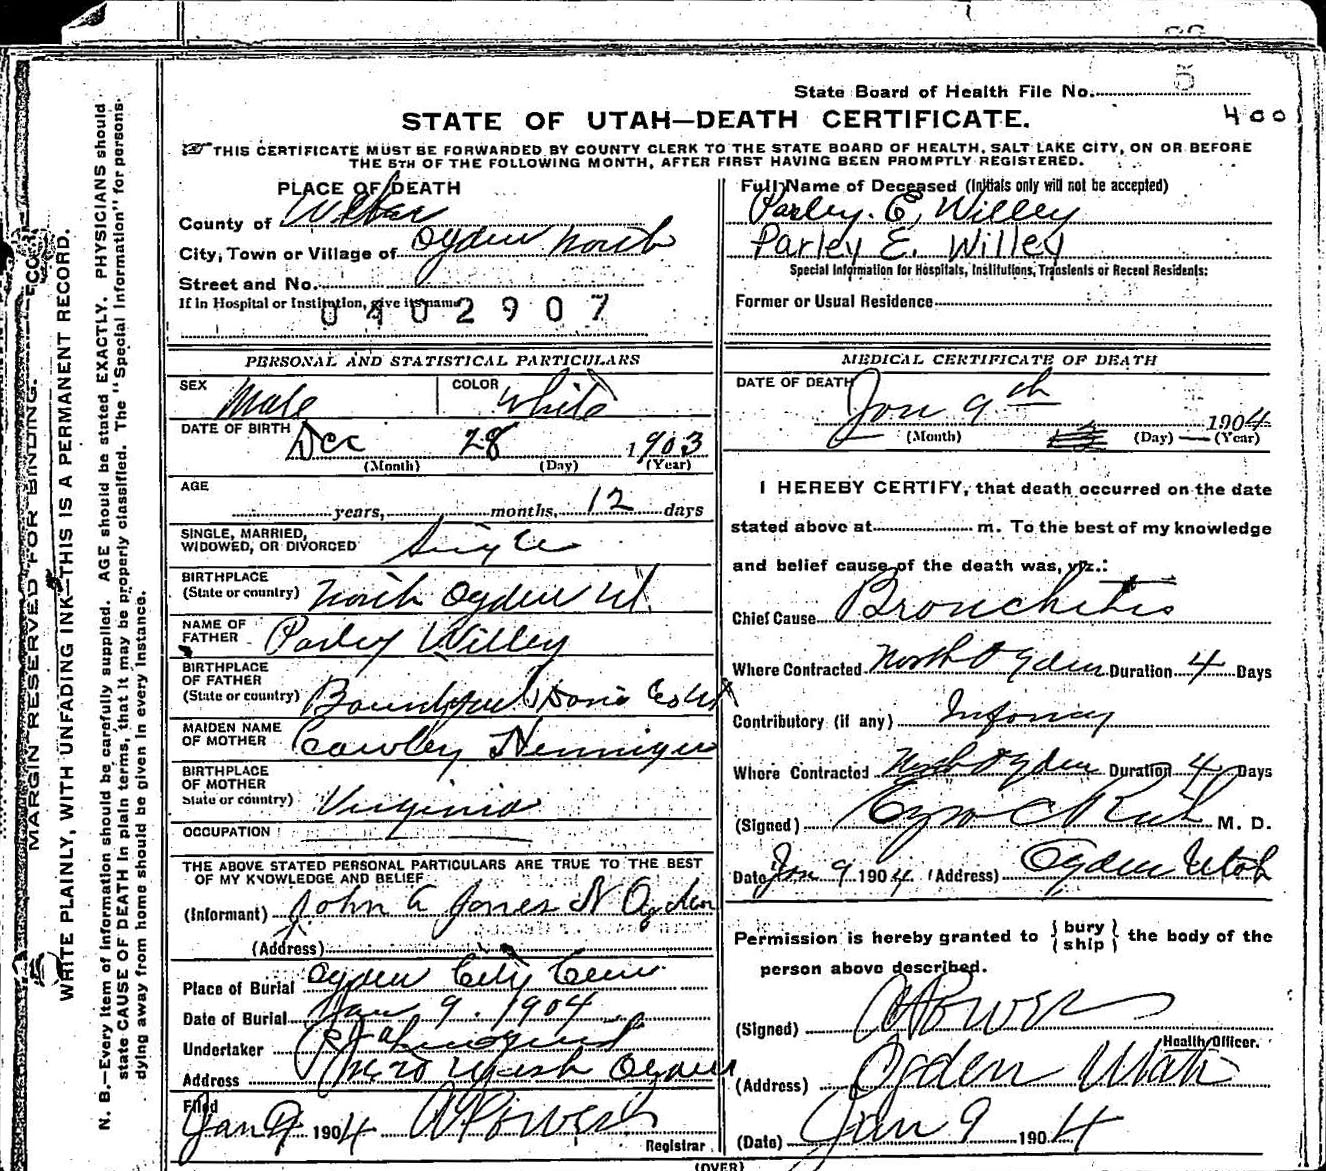 State Board of Health File No. 5
400
STATE OF UTAH—DEATH CERTIFICATE.
THIS CERTIFICATE MUST BE FORWARDED BY COUNTY CLERK TO THE STATE BOARD OF HEALTH, SALT LAKE CITY, ON OR BEFORE
THE 5TH OF THE FOLLOWING MONTH, AFTER FIRST HAVING BEEN PROMPTLY REGISTERED.
MARGIN RESERVED FOR BINDING.
WRITE PLAINLY, WITH UNFADING INK—THIS IS A PERMANENT RECORD.
N. B.—Every item of information should be carefully supplied. AGE should be stated EXACTLY. PHYSICIANS should
state CAUSE OF DEATH in plain terms, that it may be properly classified. The "Special Information" for persons
dying away from home should be given in every instance.
PLACE OF DEATH
County of Weber
City, Town or Village of Ogden North
Street and No.
If in Hospital or Institution, give its name
0402907
PERSONAL AND STATISTICAL PARTICULARS
SEX Male COLOR White
DATE OF BIRTH Dec 28 1903
(Month) (Day) (Year)
AGE
years, months, 12 days
SINGLE, MARRIED,
WIDOWED, OR DIVORCED Single
BIRTHPLACE
(State or country) North Ogden Ut.
NAME OF
FATHER Parley Willey
BIRTHPLACE
OF FATHER
(State or country) Bountiful Davis Co Ut
MAIDEN NAME
OF MOTHER Henniger
BIRTHPLACE
OF MOTHER
State or country) Virginia
OCCUPATION
THE ABOVE STATED PERSONAL PARTICULARS ARE TRUE TO THE BEST
OF MY KNOWLEDGE AND BELIEF
(Informant) John A Jones N Ogden
(Address)
Place of Burial Ogden City Cem
Date of Burial Jan 9. 1904
Undertaker
Address Ogden
Filed
Jan 9 1904
Registrar
Full Name of Deceased (Initials only will not be accepted)
Parley. E, Willey
Parley E. Willey
Special Information for Hospitals, Institutions, Transients or Recent Residents:
Former or Usual Residence
MEDICAL CERTIFICATE OF DEATH
DATE OF DEATH Jan 9th 1904
(Month) (Day) (Year)
I HEREBY CERTIFY, that death occurred on the date
stated above at m. To the best of my knowledge
and belief cause of the death was, viz.:
Chief Cause Bronchitis
Where Contracted North Ogden Duration 4 Days
Contributory (if any) Infancy
Where Contracted North Ogden Duration 4 Days
(Signed) M. D.
Date Jan 9 1904 (Address) Ogden Utah
Permission is hereby granted to { bury ship } the body of the
person above described.
(Signed)
Health Officer.
(Address) Ogden Utah
(Date) Jan 9 1904
(OVER)